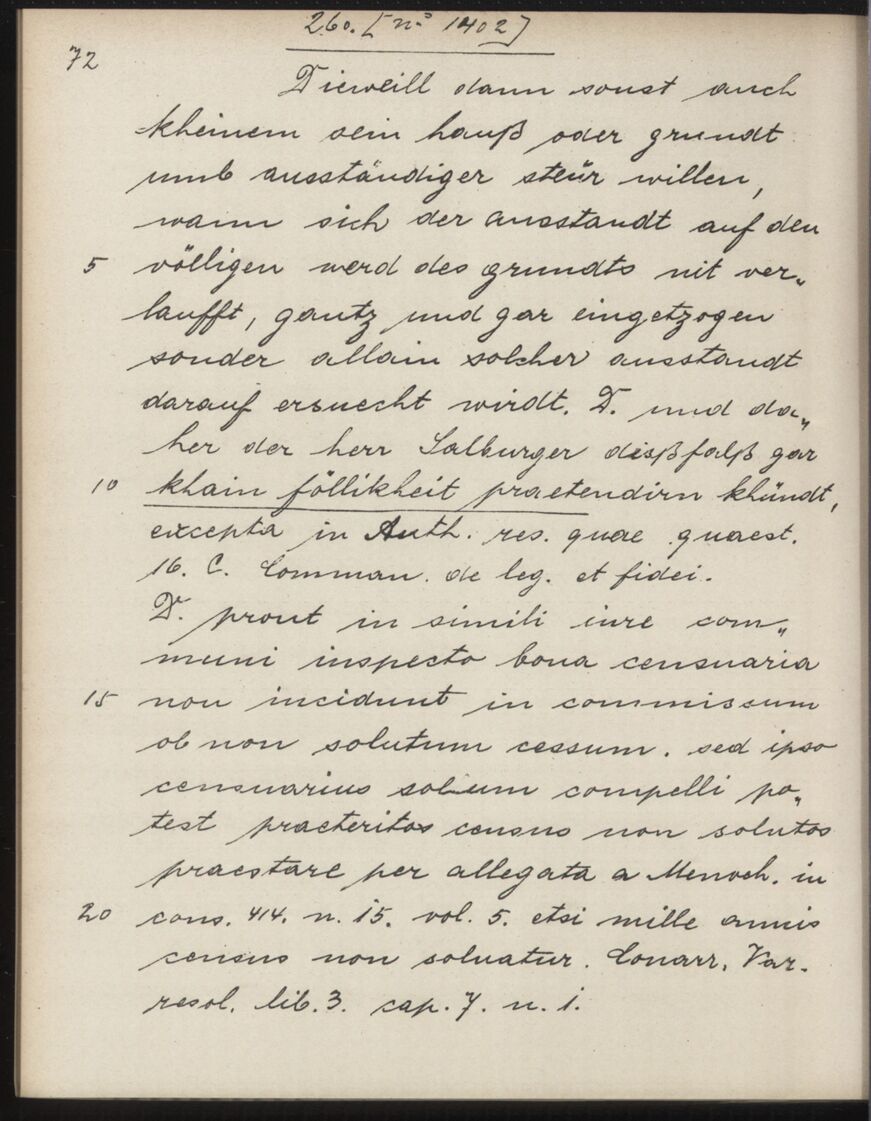 260. [nº 1402]
72
Dieweill dann sonst auch
kheinem sein hauß oder grundt
umb ausständiger steür willen,
wann sich der ausstandt auf den
5 völligen werd des grundts nit ver„
laufft, gantz und gar eingetzogen
sonder allain solcher ausstandt
darauf ersuecht wirdt. D. und da„
her der herr Salburger dißfalß gar
10 khain föllikheit praetendirn khündt,
excepta in Auth. res. quae quaest.
16. C. Comman. de leg. et fidei.
D. prout in simili iure com„
muni inspecto bona censuaria
15 non incidunt in commissum
ob non solutum cessum. sed ipso
censuarius solum compelli po„
test praeteritos census non solutos
praestare per allegata a Menoch. in
20 cons. 414. n. 15. vol. 5. etsi mille annis
census non soluatur. Couarr. Var.
resol. lib. 3. cap. 7. n. 1.